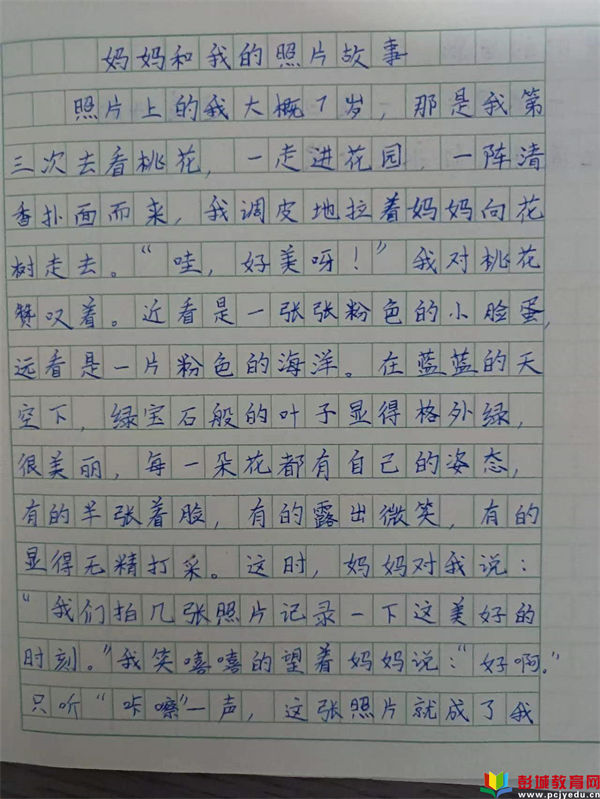 妈妈和我的照片故事
照片上的我大概7岁，那是我第
三次去看桃花，一走进花园，一阵清
香扑面而来，我调皮地拉着妈妈向花
树走去。“哇，好美呀！”我对桃花
赞叹着。近看是一张张粉色的小脸蛋，
远看是一片粉色的海洋。在蓝蓝的天
空下，绿宝石般的叶子显得格外绿，
很美丽，每一朵花都有自己的姿态，
有的半张着脸，有的露出微笑，有的
显得无精打采。这时，妈妈对我说：
“我们拍几张照片记录一下这美好的
时刻。”我笑嘻嘻的望着妈妈说：“好啊。”
只听“咔嚓”一声，这张照片就成了我
彭城教育网
www.pcjyedu.cn